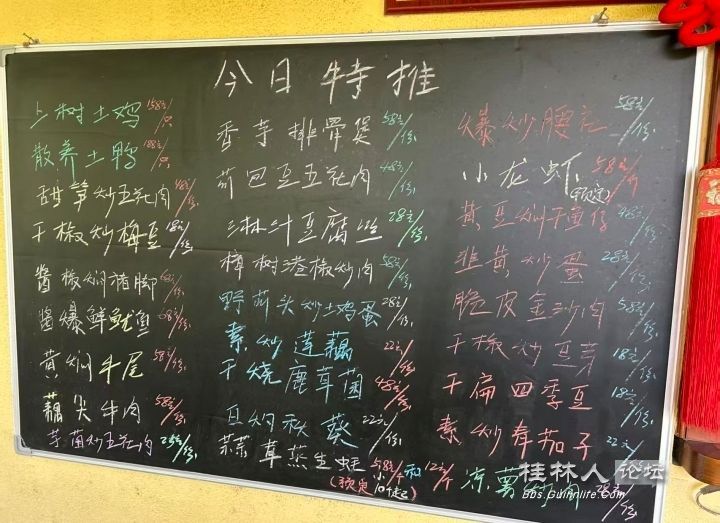 今日特推
上树土鸡 158元/只
散养土鸭 188元/只
甜笋炒五花肉 48元/份
干椒炒梅豆 18元/份
酱椒焖猪脚 68元/份
酱爆鲜鱿鱼 68元/份
黄焖牛尾 58元/份
藕尖牛肉 58元/份
芋苗炒五花肉 28元/份
香芋排骨煲 58元/份
荷包豆五花肉 48元/份
三林汁豆腐丝 28元/份
樟树港椒炒肉 58元/份
野荞头炒土鸡蛋 28元/份
素炒莲藕 22元/份
干烧鹿茸菌 48元/份
白焖秋葵 22元/份
蒜蓉蒸生蚝 58元/小份 12元/个
(预定 10个起)
爆炒腰花 58元/份
小龙虾 58元/斤
(预定)
黄豆焖干鱼仔 48元/份
韭黄炒蛋 28元/份
脆皮金沙肉 58元/份
干椒炒豆芽 18元/份
干扁四季豆 18元/份
素炒茄子 22元/份
凉薯炒肉 28元/份
桂林人论坛
Bbs.Guilinlife.Com